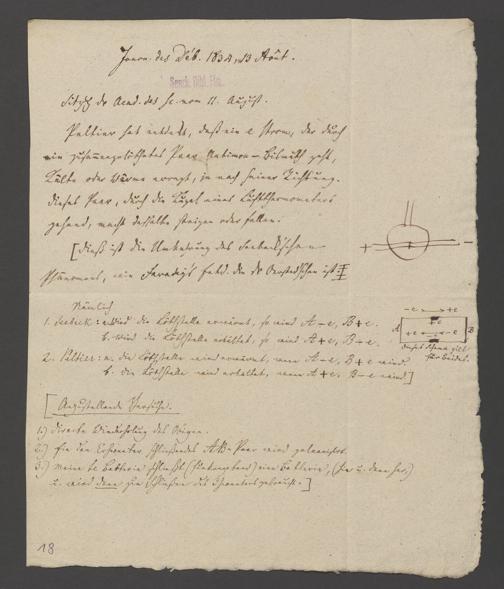 Journ. des Déb. 1834, 13 Août.
Senck. Bibl. Ffm.
Sitzg der Acad. des Sc. vom 11. August.
Peltier hat entdeckt, daß ein e Strom, der durch
ein zusammengelöthetes Paar Antimon-Bismuth geht,
Kälte oder Wärme erregt, je nach seiner Richtung.
Dieses Paar, durch die Kugel eines Luftthermometers
gehend, macht dasselbe steigen oder fallen.
[Dieß ist die Umkehrung des Seebeck'schen
Phänomens, wie Faraday's die der Oersted'schen ist:
+ −
Nämlich
1. Seebeck: a. Wird die Löthstelle erwärmt, so wird A−e, B+e.
b. wird die Löthstelle erkaltet, so wird A+e, B−e.
2. Peltier: a. die Löthstelle wird erwärmt, wenn A−e, B+e wird.
b. die Löthstelle wird erkaltet, wenn A+e, B−e wird]
−e +e
A B
+e −e
dieses Schema gilt
für beides.
[Anzustellende Versuche.
1.) Directe Wiederholung des Obigen.
2.) schließendes AB-Paar wird
3.) Meine Batterie schließt eine Batterie,
u. wird dann zu gebraucht.]
18